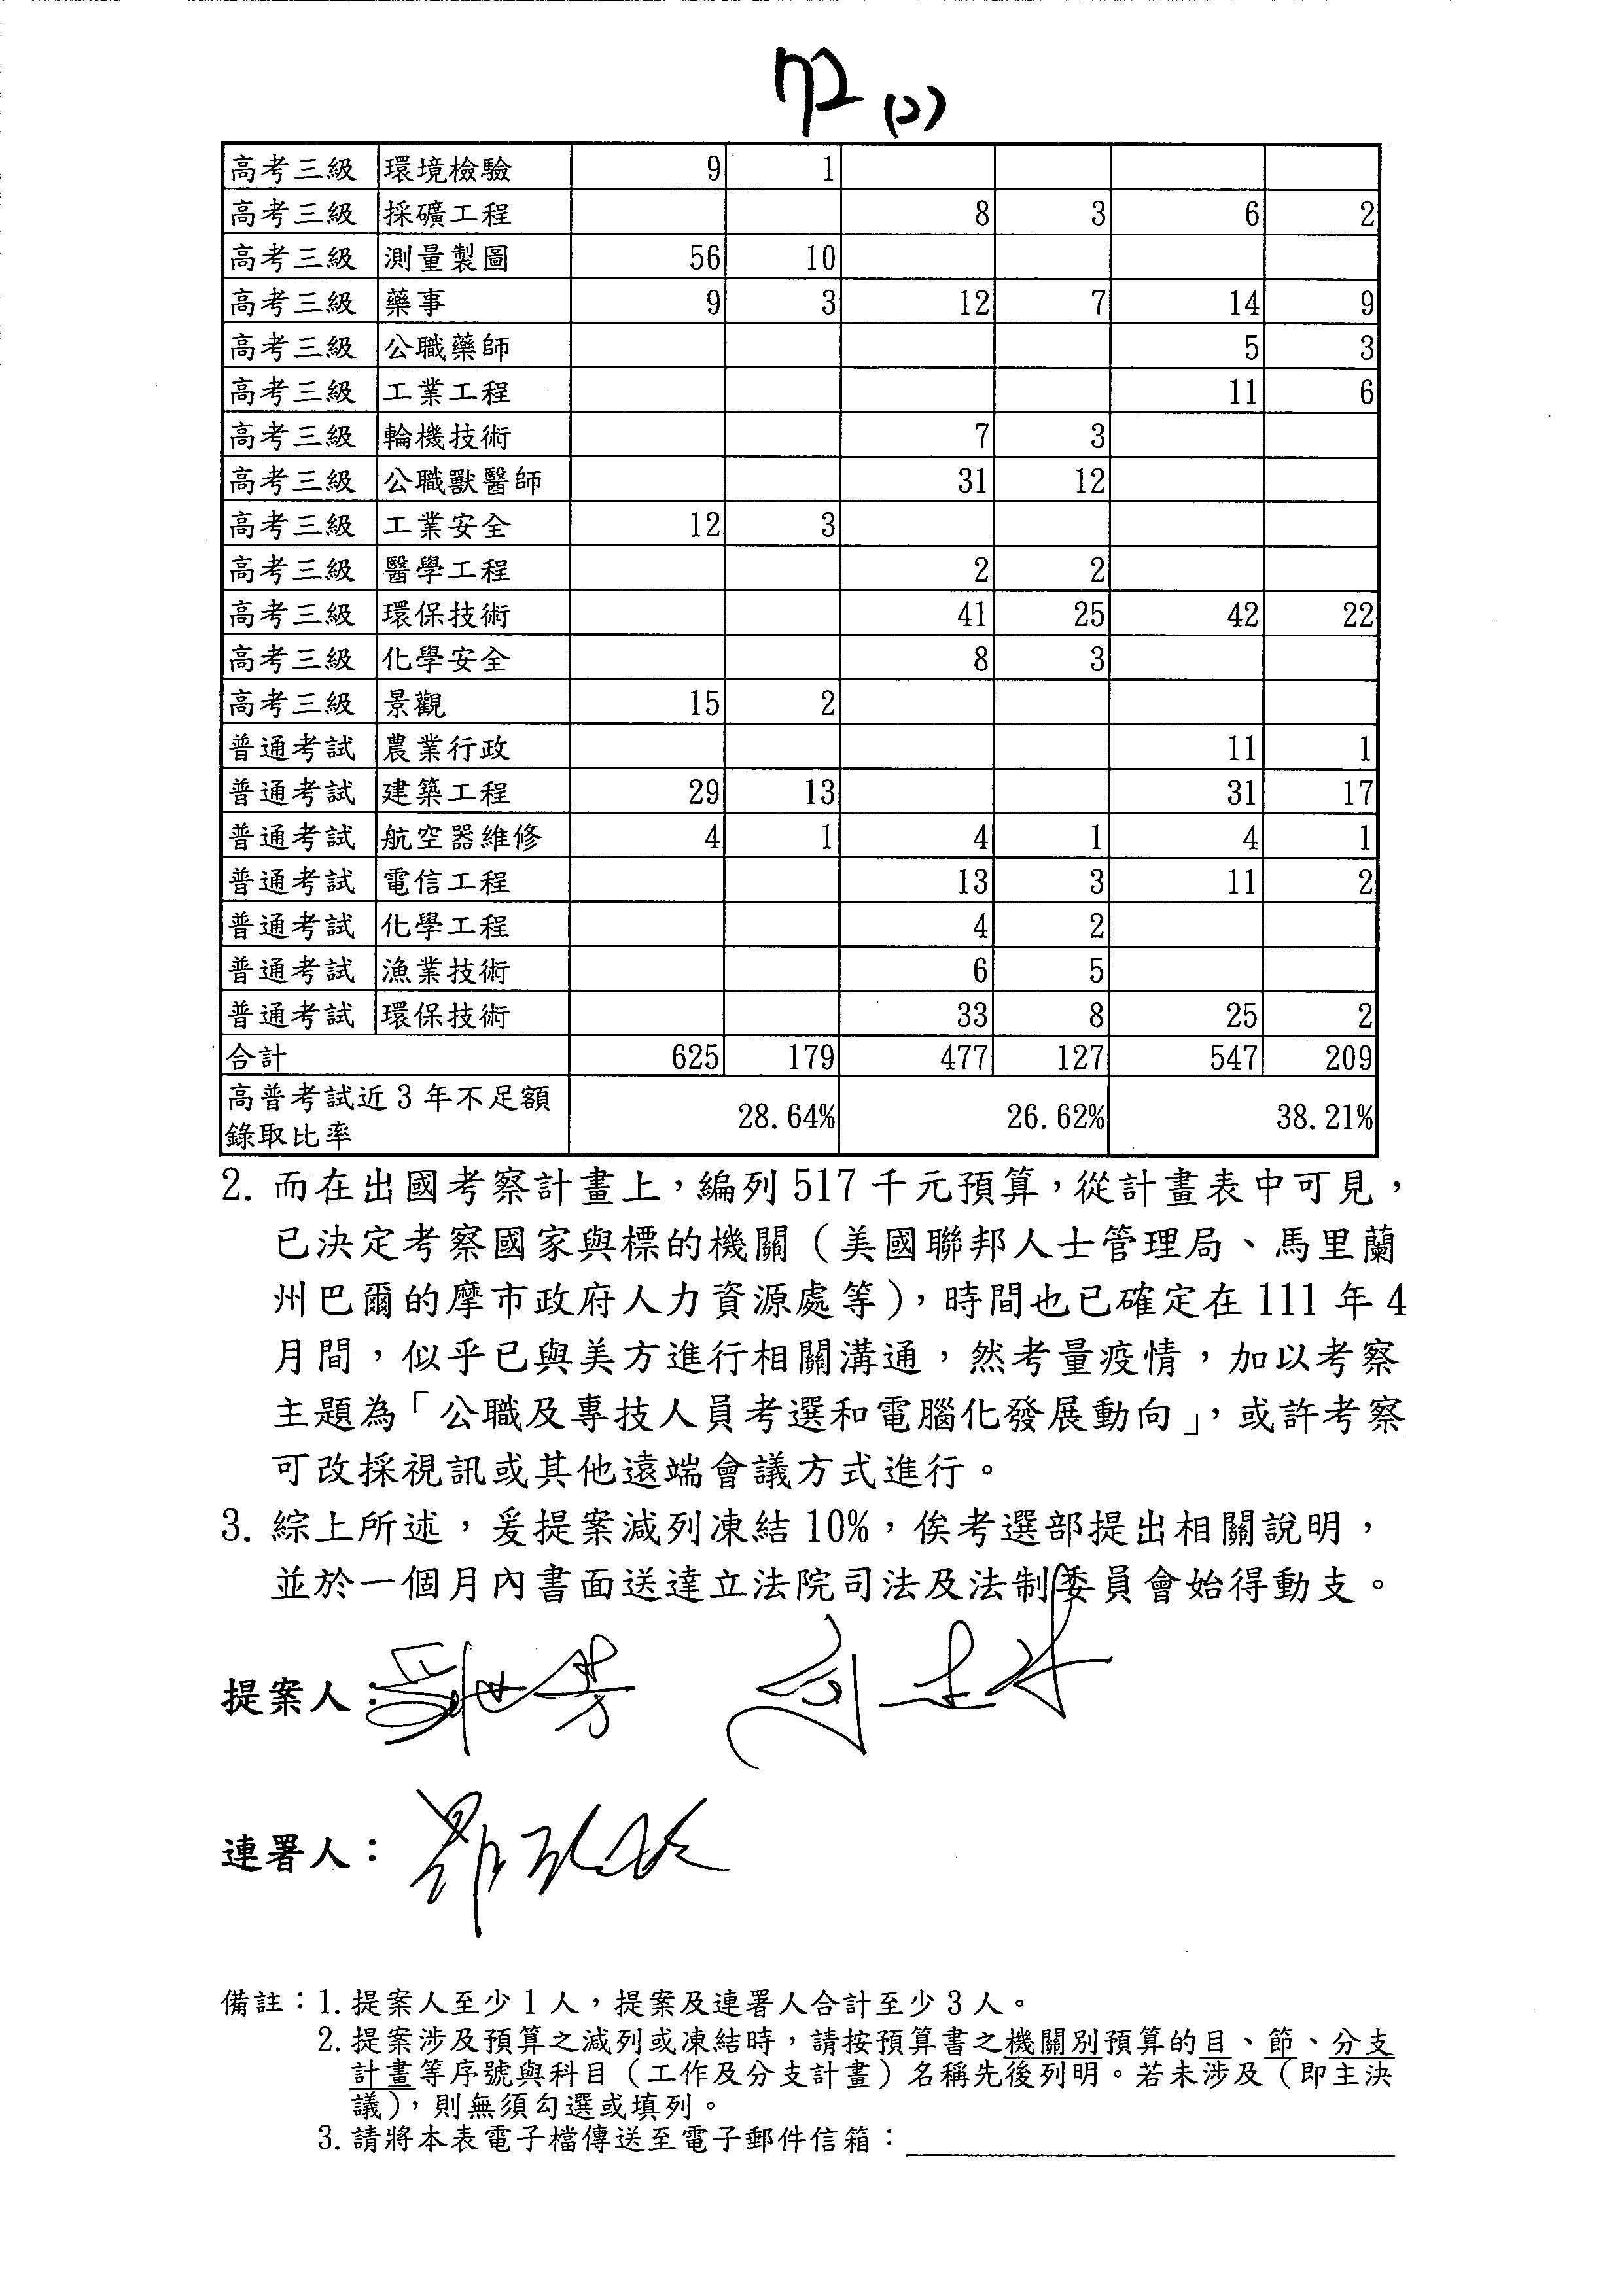 72 (2)
高考三級 環境檢驗 9 1
高考三級 採礦工程 8 3 6 2
高考三級 測量製圖 56 10
高考三級 藥事 9 3 12 7 14 9
高考三級 公職藥師 5 3
高考三級 工業工程 11 6
高考三級 輪機技術 7 3
高考三級 公職獸醫師 31 12
高考三級 工業安全 12 3
高考三級 醫學工程 2 2
高考三級 環保技術 41 25 42 22
高考三級 化學安全 8 3
高考三級 景觀 15 2
普通考試 農業行政 11 1
普通考試 建築工程 29 13 31 17
普通考試 航空器維修 4 1 4 1 4 1
普通考試 電信工程 13 3 11 2
普通考試 化學工程 4 2
普通考試 漁業技術 6 5
普通考試 環保技術 33 8 25 2
合計 625 179 477 127 547 209
高普考試近3年不足額
錄取比率 28.64% 26.62% 38.21%
2. 而在出國考察計畫上，編列517千元預算，從計畫表中可見，
已決定考察國家與標的機關（美國聯邦人士管理局、馬里蘭
州巴爾的摩市政府人力資源處等），時間也已確定在111年4
月間，似乎已與美方進行相關溝通，然考量疫情，加以考察
主題為「公職及專技人員考選和電腦化發展動向」，或許考察
可改採視訊或其他遠端會議方式進行。
3. 綜上所述，爰提案減列凍結10%，俟考選部提出相關說明，
並於一個月內書面送達立法院司法及法制委員會始得動支。
提案人：
連署人：
備註：1.提案人至少1人，提案及連署人合計至少3人。
2.提案涉及預算之減列或凍結時，請按預算書之機關別預算的目、節、分支
計畫等序號與科目（工作及分支計畫）名稱先後列明。若未涉及（即主決
議），則無須勾選或填列。
3.請將本表電子檔傳送至電子郵件信箱：